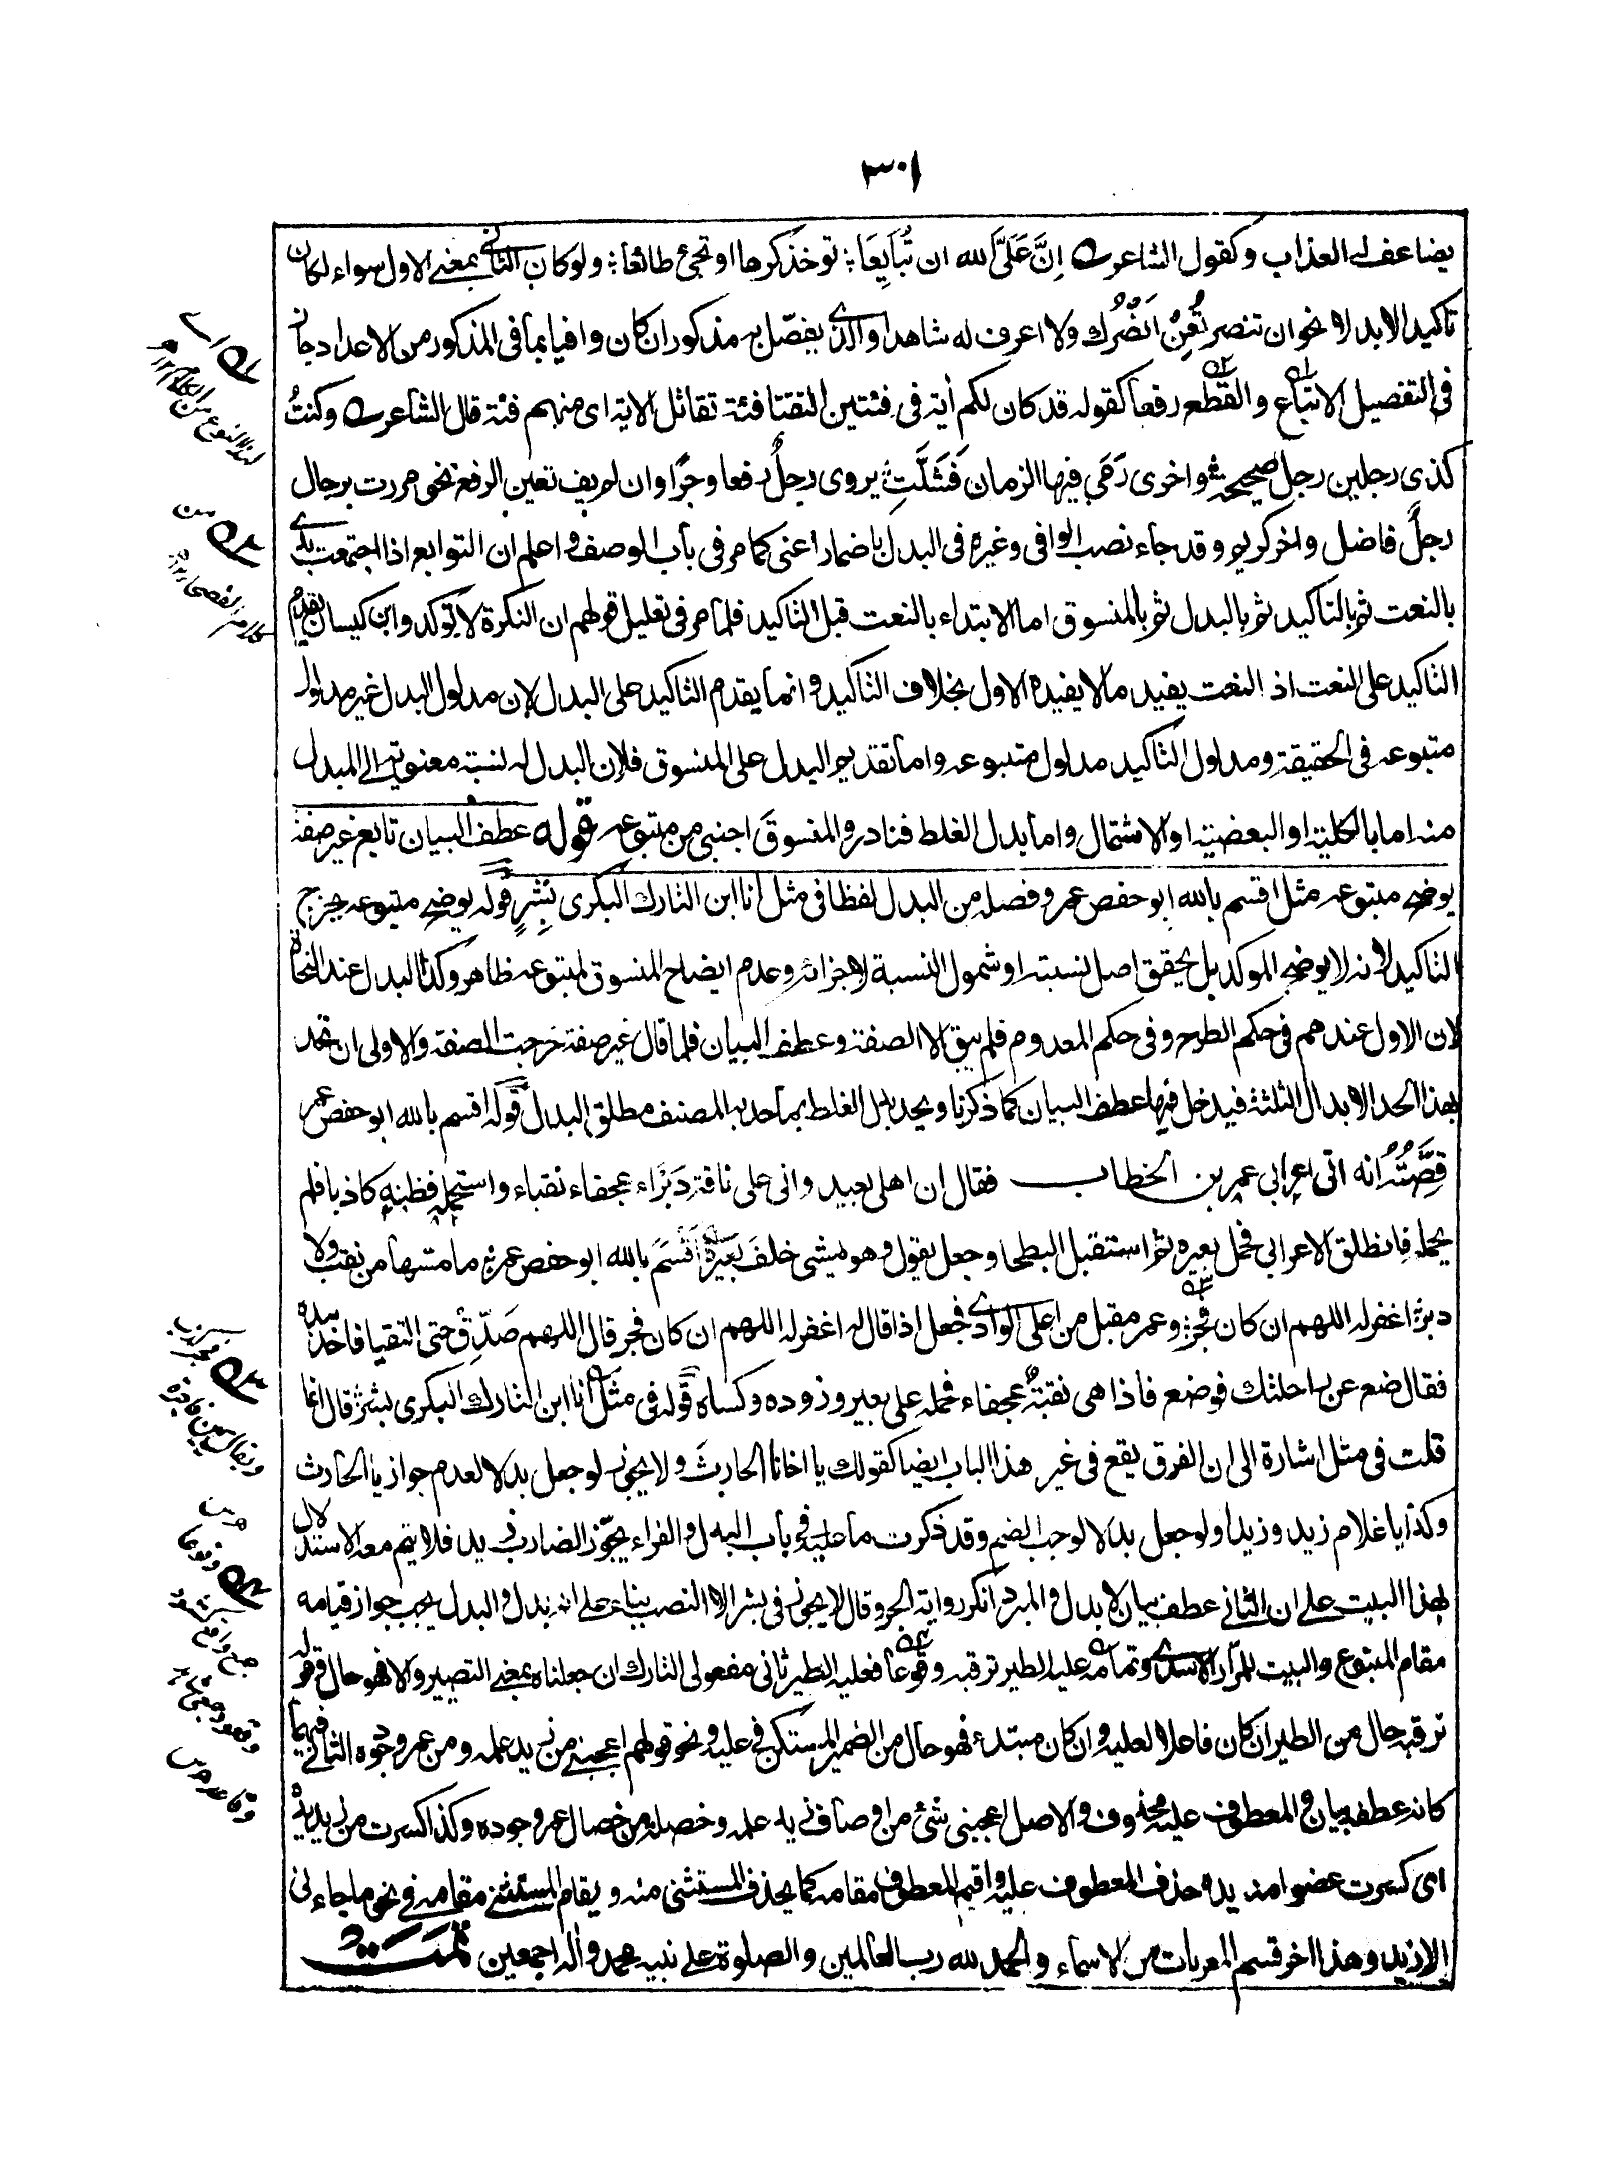 ٣٠١
يضاعف له العذاب وكقول الشاعر إِنَّ عَلَيَّ لله ان تُبَايِعَا ؛ توخذ كرها او تجئ طائعا ؛ ولو كان الثاني بمعنى الاول سواء لكان
تاكيدا لا بدلا نحو ان تنصر تُعِنْ انْصُرك ولا اعرف له شاهدا والذى يفصّل به مذكور ان كان وافيا بما فى المذكور من الاعداد جاز
فى التفصيل الاتباع والقطع رفعا كقوله قد كان لكم أية فى فئتين التقتا فئة تقاتل الاية اى منهم فئة قال الشاعر وكنتُ
كذى رجلين رجل صحيحة ؛ واخرى رَمَى فيها الزمان فَشَلَّتِ ؛ يروى رجلٌ رفعا وجرًا وان لم يف تعين الرفع نحو مررت برجال
رجلٌ فاضل واخر كريم وقد جاء نصب الوافى وغيره فى البدل باضمار اعنى كما مر فى باب الوصف واعلم ان التوابع اذا اجتمعت بدئ
بالنعت ثم بالتاكيد ثم بالبدل ثم بالمنسوق اما الابتداء بالنعت قبل التاكيد فلما مر فى تعليل قولهم ان النكرة لا تؤكد وابن كيسان يقدم
التاكيد على النعت اذ النعت يفيد ما لا يفيده الاول بخلاف التاكيد وانما يقدم التاكيد على البدل لان مدلول البدل غير مدلول
متبوعه فى الحقيقة ومدلول التاكيد مدلول متبوعه واما تقديم البدل على المنسوق فلان البدل له نسبة معنوية الى المبدل
منه اما بالكلية او البعضية او الاشتمال واما بدل الغلط فنادر والمنسوق اجنبى من متبوعه قوله عطف البيان تابع غير صفة
يوضح متبوعه مثل اقسم بالله ابو حفص عمر وفصله من البدل لفظا فى مثل انا ابن التارك البكرى بِشْرٍ قوله يوضح متبوعه خرج
التاكيد لانه لا يوضح الموكد بل يحقق اصل نسبته او شمول النسبة لاجزائه وعدم ايضاح المنسوق لمتبوعه ظاهر وكذا البدل عند النحاة
لان الاول عندهم فى حكم الطرح وفى حكم المعدوم فلم يبق الا الصفة وعطف البيان فلما قال غير صفة خرجت الصفة والاولى ان تحد
بهذا الحد الابدال الثلثة فيدخل فيها عطف البيان كما ذكرنا ويحد بدل الغلط بما حد به المصنف مطلق البدل قوله اقسم بالله ابو حفص عمر
قِصَّتُهُ انه اتى اعرابى عمر بن الخطاب فقال ان اهلى بعيد وانى على ناقة دَبْرَاء عجفاء نقباء واستحمله فظنه كاذبا فلم
يحمله فانطلق الاعرابى فحمل بعيره ثم استقبل البطحا وجعل يقول وهو يمشى خلف بعيره اَقْسَمَ بالله ابو حفص عمر ؛ ما مسها من نقب ولا
دبر ؛ اغفر له اللهم ان كان فجر ؛ وعمر مقبل من اعلى الوادى فجعل اذا قال له اغفر له اللهم ان كان فجر قال اللهم صَدِّق حتى التقيا فاخذ بيده
فقال ضع عن راحلتك فوضع فاذا هى نقبةٌ عجفاء فحمله على بعير وزوده وكساه قوله فى مثل انا ابن التارك البكرى بشر ؛ قال انما
قلت فى مثل اشارة الى ان الفرق يقع فى غير هذا الباب ايضا كقولك يا اخانا الحارثَ ولا يجوز لو جعل بدلا لعدم جواز يا الحارث
وكذا يا غلام زيد وزيدا ولو جعل بدلا لوجب الضم وقد ذكرت ما عليه فى باب البدل والفراء يجوّز الضارب زيد فلا يتم معه الاستدلال
بهذا البيت على ان الثانى عطف بيان لا بدل والمبرد انكر رواية الجر وقال لا يجوز فى بشر الا النصب بناء على انه بدل والبدل يجب جواز قيامه
مقام المتبوع والبيت للمرّار الاسدى وتمامه عليه الطير ترقبه وقوعا فعليه الطير ثانى مفعولى التارك ان جعلناه بمعنى التصيير والا فهو حال وقوله
ترقبه حال من الطير ان كان فاعلا لعليه وان كان مبتدأ فهو حال من الضمير المستكن فى عليه ونحو قولهم اعجبنى من زيد علمه ومن عمرو جوده الثانى فيهما
كانه عطف بيان والمعطوف عليه محذوف والاصل اعجبنى شئ من اوصاف زيد علمه وخصلة من خصال عمرو جوده وكذا كسرت من زيد يده
اى كسرت عضوا منه يده حذف المعطوف عليه واقيم المعطوف مقامه كما يحذف المستثنى منه ويقام المستثنى مقامه فى نحو ما جاءنى
الا زيد وهذا اخر قسم المعربات من الاسماء والحمد لله رب العالمين والصلوة على نبيه محمد وأله اجمعين تمت